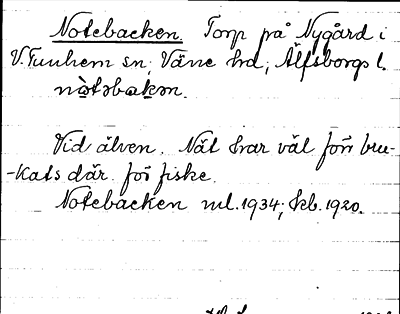 Notebacken. Torp på Nygård i
V. Tunhem sn, Väne hd, Älfsborgs l.
nòtəbakən.
Vid älven. Nät har väl förr bru-
-kats där för fiske.
Notebacken ml. 1934; kb. 1920.